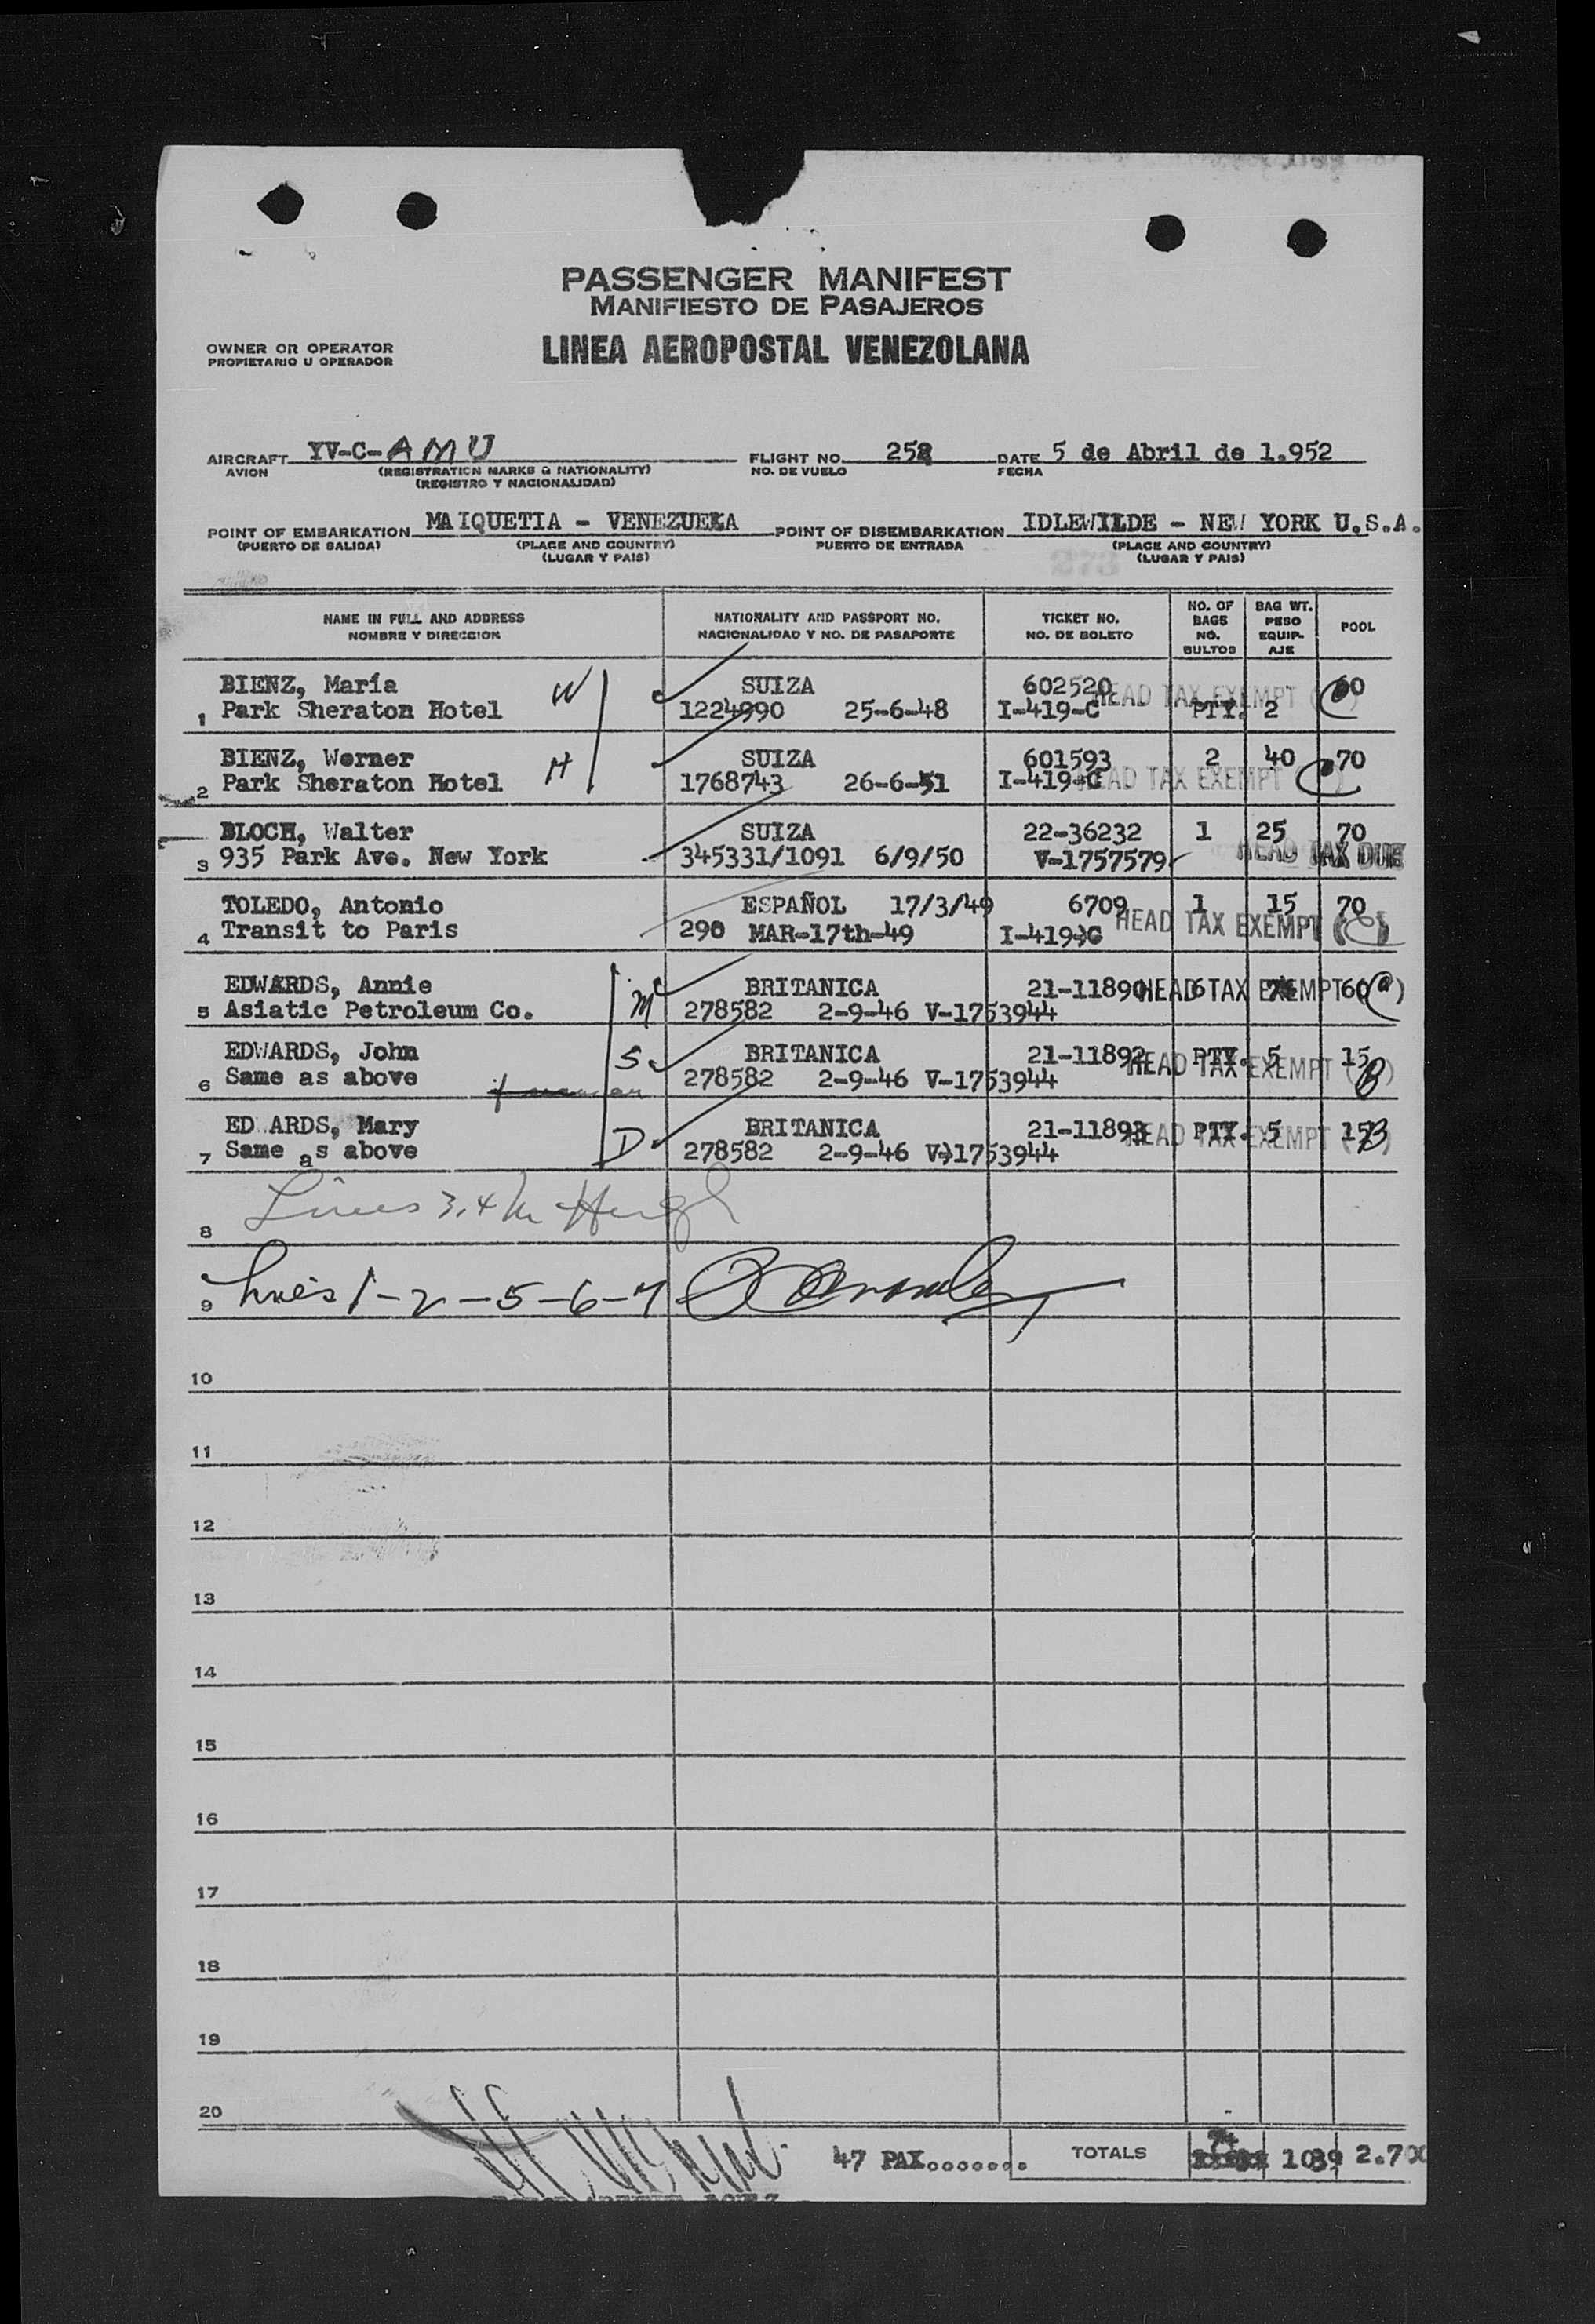 PASSENGER MANIFEST
MANIFIESTO DE PASAJEROS
OWNER OR OPERATOR
PROPIETARIO U OPERADOR
LINEA AEROPOSTAL VENEZOLANA
AIRCRAFT YV-C-AMU FLIGHT NO. 252 DATE 5 de Abril de 1.952
AVION (REGISTRATION MARKS & NATIONALITY) NO. DE VUELO FECHA
(REGISTRO Y NACIONALIDAD)
POINT OF EMBARKATION MAIQUETIA - VENEZUELA POINT OF DISEMBARKATION IDLEWILDE - NEW YORK U.S.A.
(PUERTO DE SALIDA) (PLACE AND COUNTRY) PUERTO DE ENTRADA (PLACE AND COUNTRY)
(LUGAR Y PAIS) (LUGAR Y PAIS)
NAME IN FULL AND ADDRESS NATIONALITY AND PASSPORT NO. TICKET NO. NO. OF BAGS BAG WT. POOL
NOMBRE Y DIRECCION NACIONALIDAD Y NO. DE PASAPORTE NO. DE BOLETO NO. BULTOS PESO EQUIP-AJE
BIENZ, Maria W SUIZA 602520 HEAD TAX EXEMPT 60
1 Park Sheraton Hotel 1224990 25-6-48 I-419-C PTY. 2
BIENZ, Werner H SUIZA 601593 2 40 70
2 Park Sheraton Hotel 1768743 26-6-51 I-419-C HEAD TAX EXEMPT
BLOCH, Walter SUIZA 22-36232 1 25 70
3 935 Park Ave. New York 345331/1091 6/9/50 V-1757579 HEAD TAX DUE
TOLEDO, Antonio ESPAÑOL 17/3/49 6709 1 15 70
4 Transit to Paris 290 MAR-17th-49 I-419-C HEAD TAX EXEMPT (C)
EDWARDS, Annie M BRITANICA 21-11890 HEAD TAX EXEMPT 6 60 (a)
5 Asiatic Petroleum Co. 278582 2-9-46 V-1753944
EDWARDS, John S BRITANICA 21-11892 PTY. 5 15
6 Same as above 278582 2-9-46 V-1753944 HEAD TAX EXEMPT (B)
ED ARDS, Mary BRITANICA 21-11893 PTY. 5 15
7 Same as above D 278582 2-9-46 V-1753944 HEAD TAX EXEMPT (B)
8 Lines 3, 4
9 Lines 1-2-5-6-7
10
11
12
13
14
15
16
17
18
19
20
47 PAX........ TOTALS 74 1039 2.700